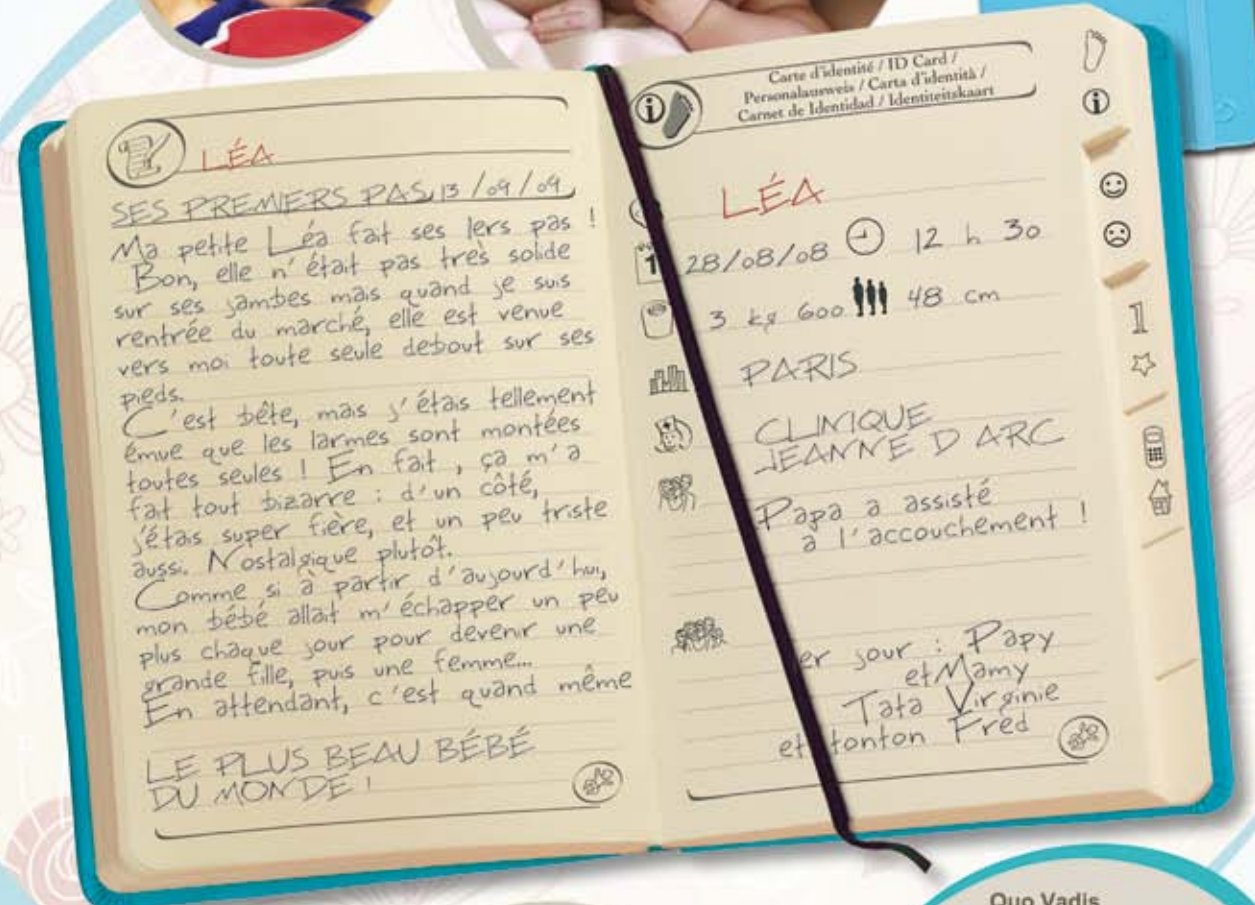 LÉA
SES PREMIERS PAS, 13/09/09
Ma petite Léa fait ses 1ers pas !
Bon, elle n'était pas très solide
sur ses jambes mais quand je suis
rentrée du marché, elle est venue
vers moi toute seule debout sur ses
pieds.
C'est bête, mais j'étais tellement
émue que les larmes sont montées
toutes seules ! En fait, ça m'a
fait tout bizarre : d'un côté,
j'étais super fière, et un peu triste
aussi. Nostalgique plutôt.
Comme si à partir d'aujourd'hui,
mon bébé allait m'échapper un peu
plus chaque jour pour devenir une
grande fille, puis une femme...
En attendant, c'est quand même
LE PLUS BEAU BÉBÉ
DU MONDE !
Carte d'identité / ID Card /
Personalausweis / Carta d'identità /
Carnet de Identidad / Identiteitskaart
LÉA
28/08/08 12 h 30
3 kg 600 48 cm
PARIS
CLINIQUE
JEANNE D ARC
Papa a assisté
a l'accouchement !
er jour : Papy
et Mamy
Tata Virginie
et tonton Fred
1
1
Quo Vadis